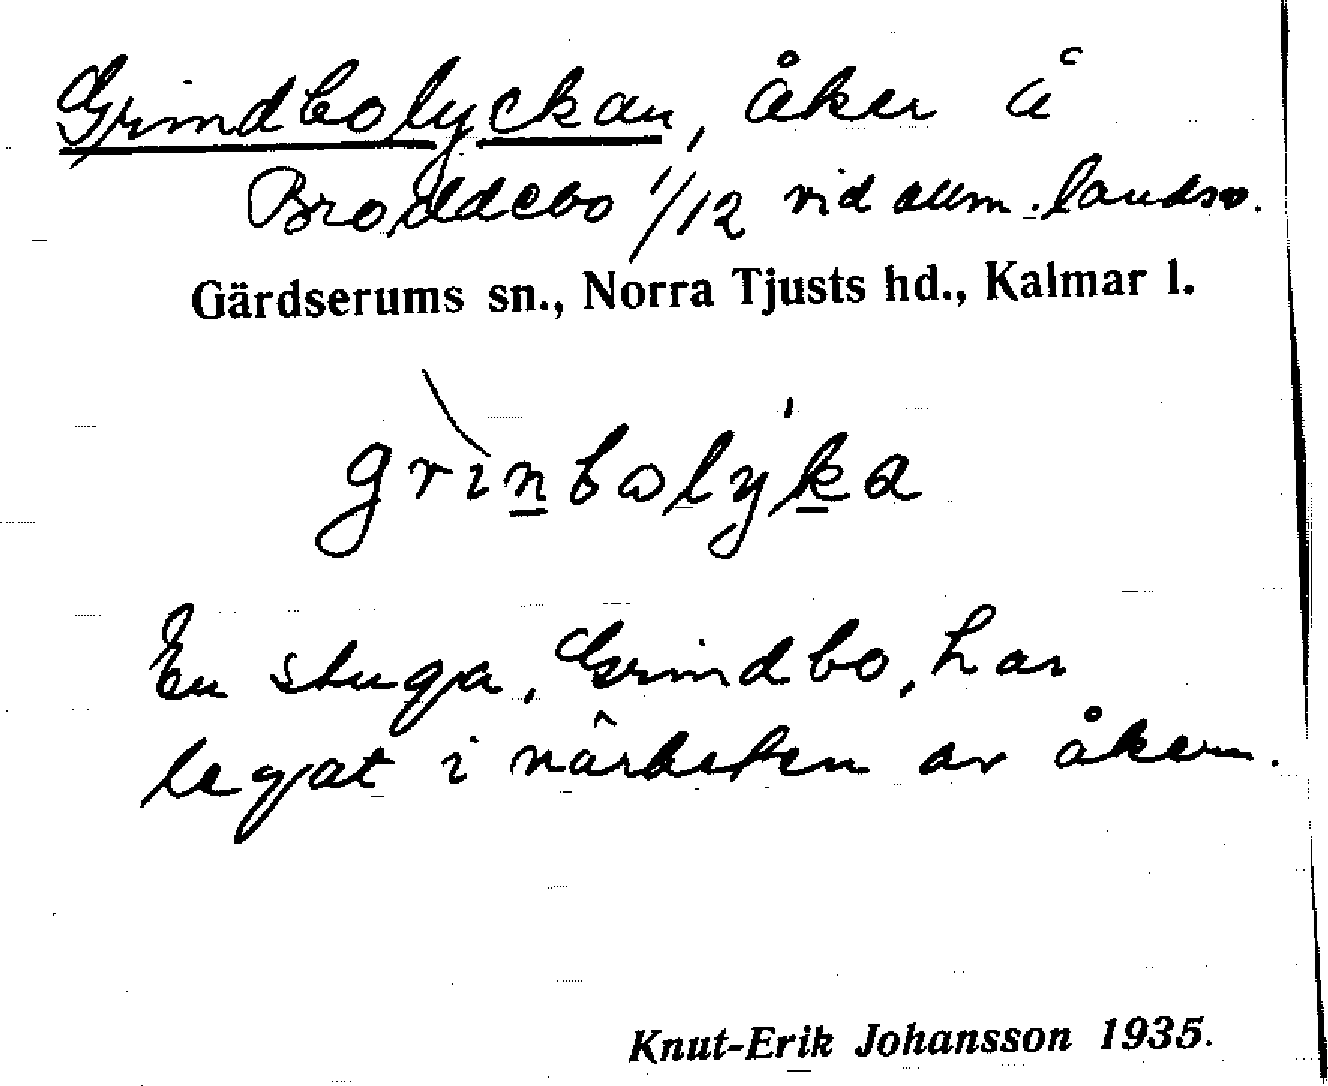 Grindbolyckan, åker å
Broddebo 1/12 vid allm. landsv.
Gärdserums sn., Norra Tjusts hd., Kalmar l.
grìnbωlýka
En stuga, Grindbo, har
legat i närheten av åkern.
Knut-Erik Johansson 1935.